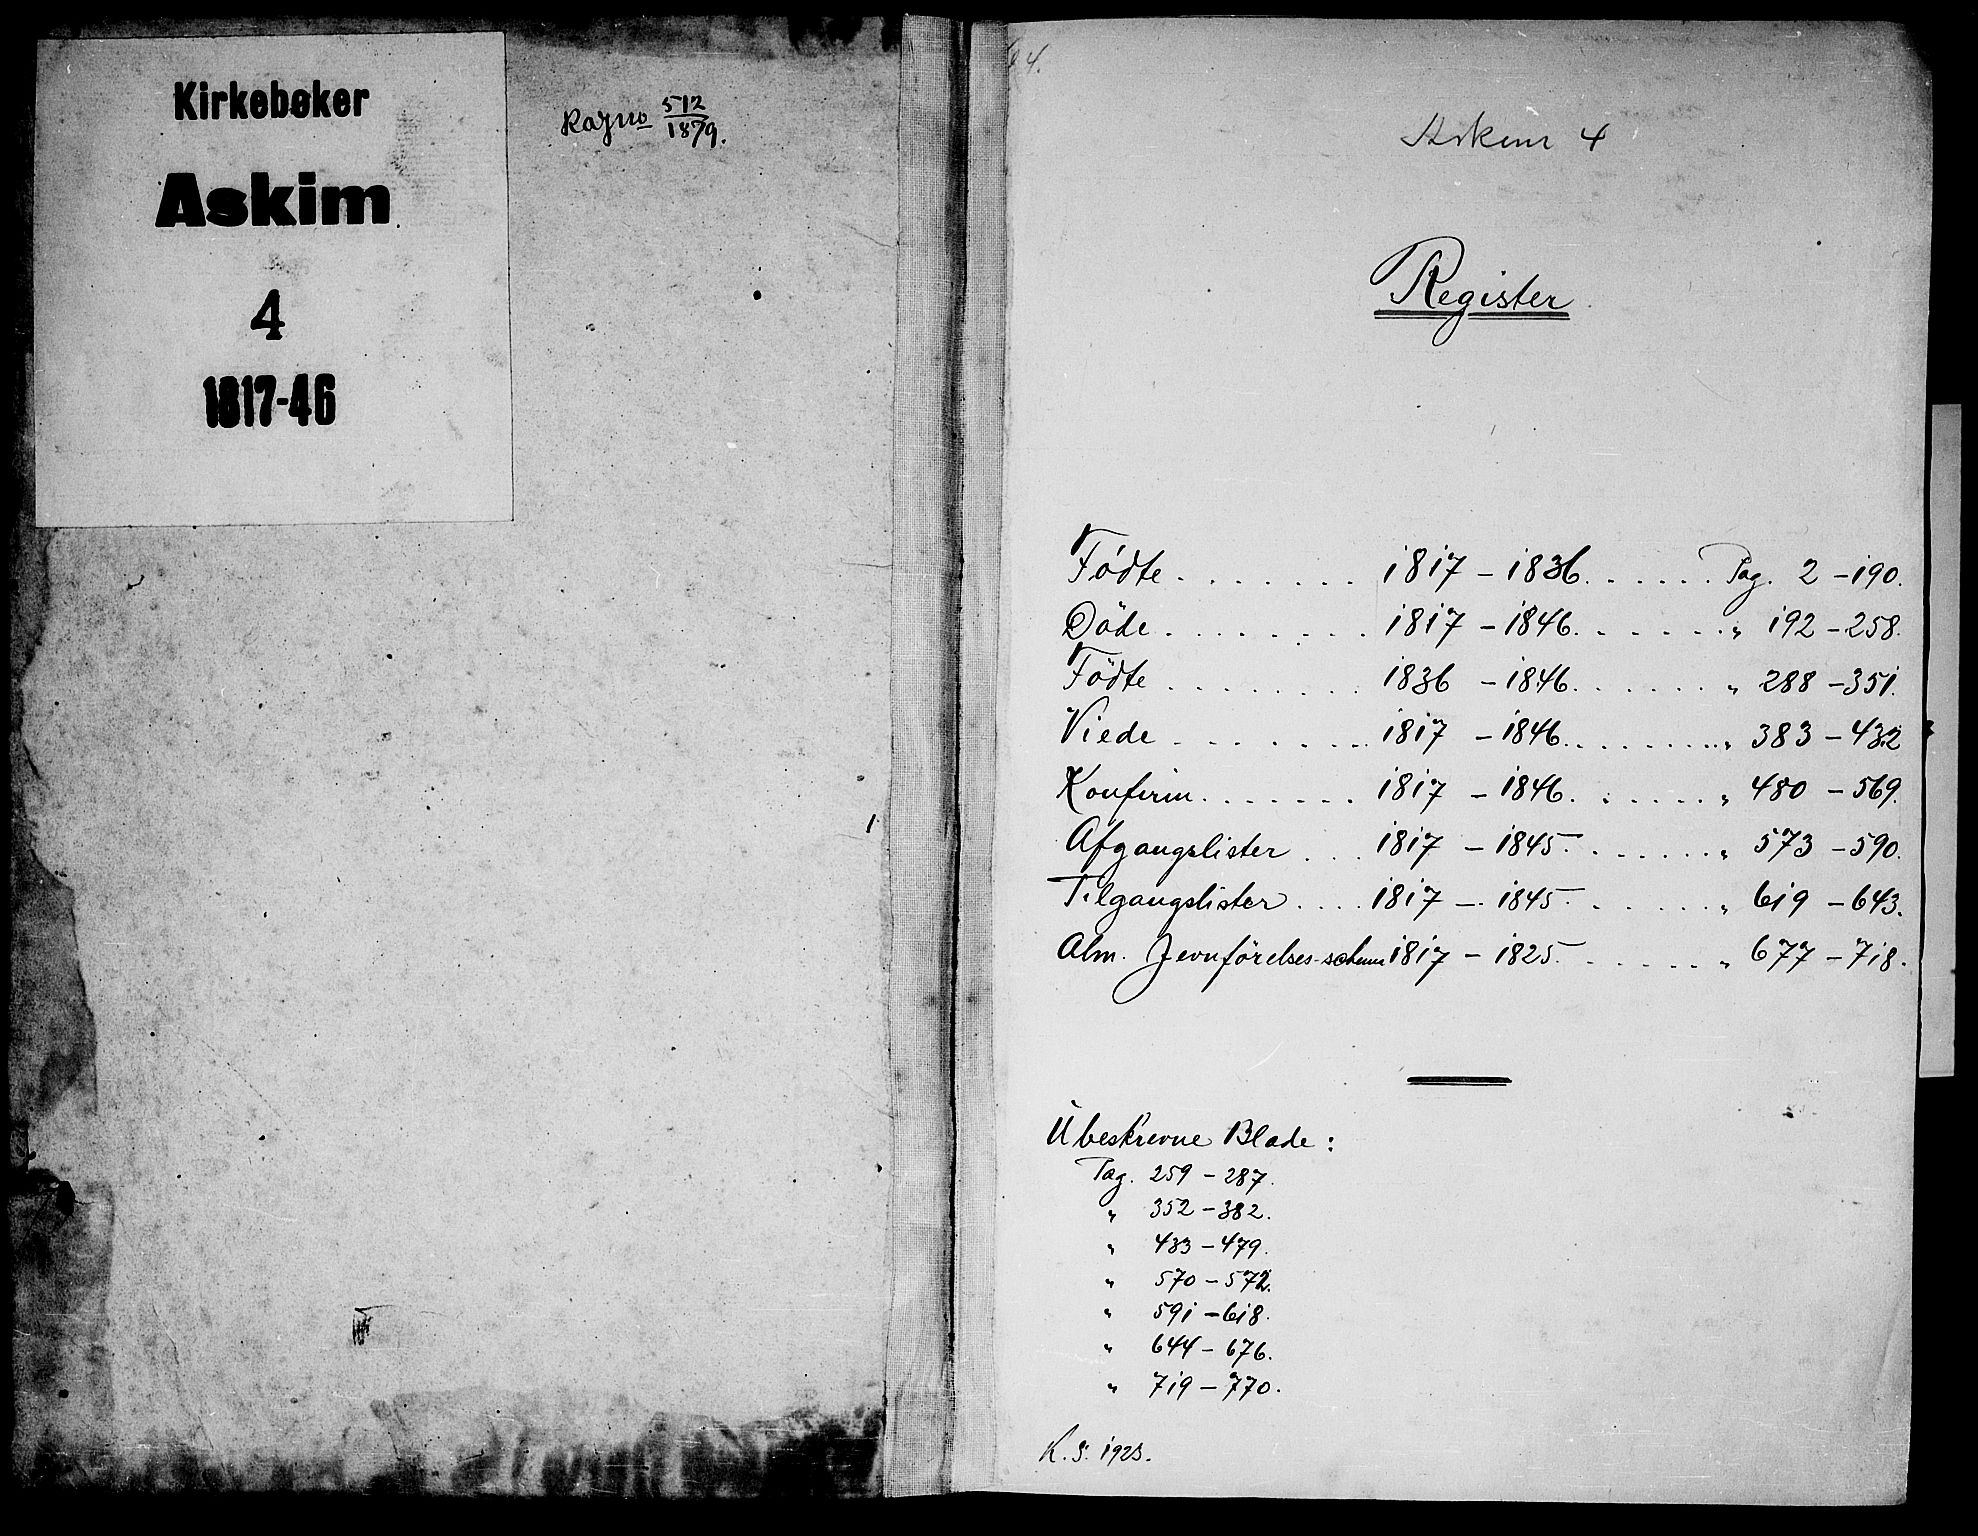 Kirkebøker
Askim
4
1817-46
512
1879.
4.
Askim 4
Register
Födte . . . . . . . 1817 – 1836. . . . . . Pag. 2 – 190.
Döde . . . . . . . . 1817 – 1846. . . . . . „ 192 – 258.
Födte . . . . . . . . 1836 – 1846. . . . . . „ 288 – 351.
Viede . . . . . . . . 1817 – 1846. . . . . . . „ 383 – 432
Konfirm. . . . . . . 1817 – 1846. . . . . . „ 480 – 569.
Afgangslister . . . 1817 – 1845. . . . . . „ 573 – 590.
Tilgangslister . . . . 1817 – 1845. . . . . . „ 619 – 643.
Alm. Jevnförelses-schema 1817 – 1825. . . . . . „ 677 – 718.
Ubeskrevne Blade:
Pag. 259 – 287.
„ 352 – 382.
„ 433 – 479.
„ 570 – 572.
„ 591 – 618.
„ 644 – 676.
„ 719 – 770.
K. S. 1923.